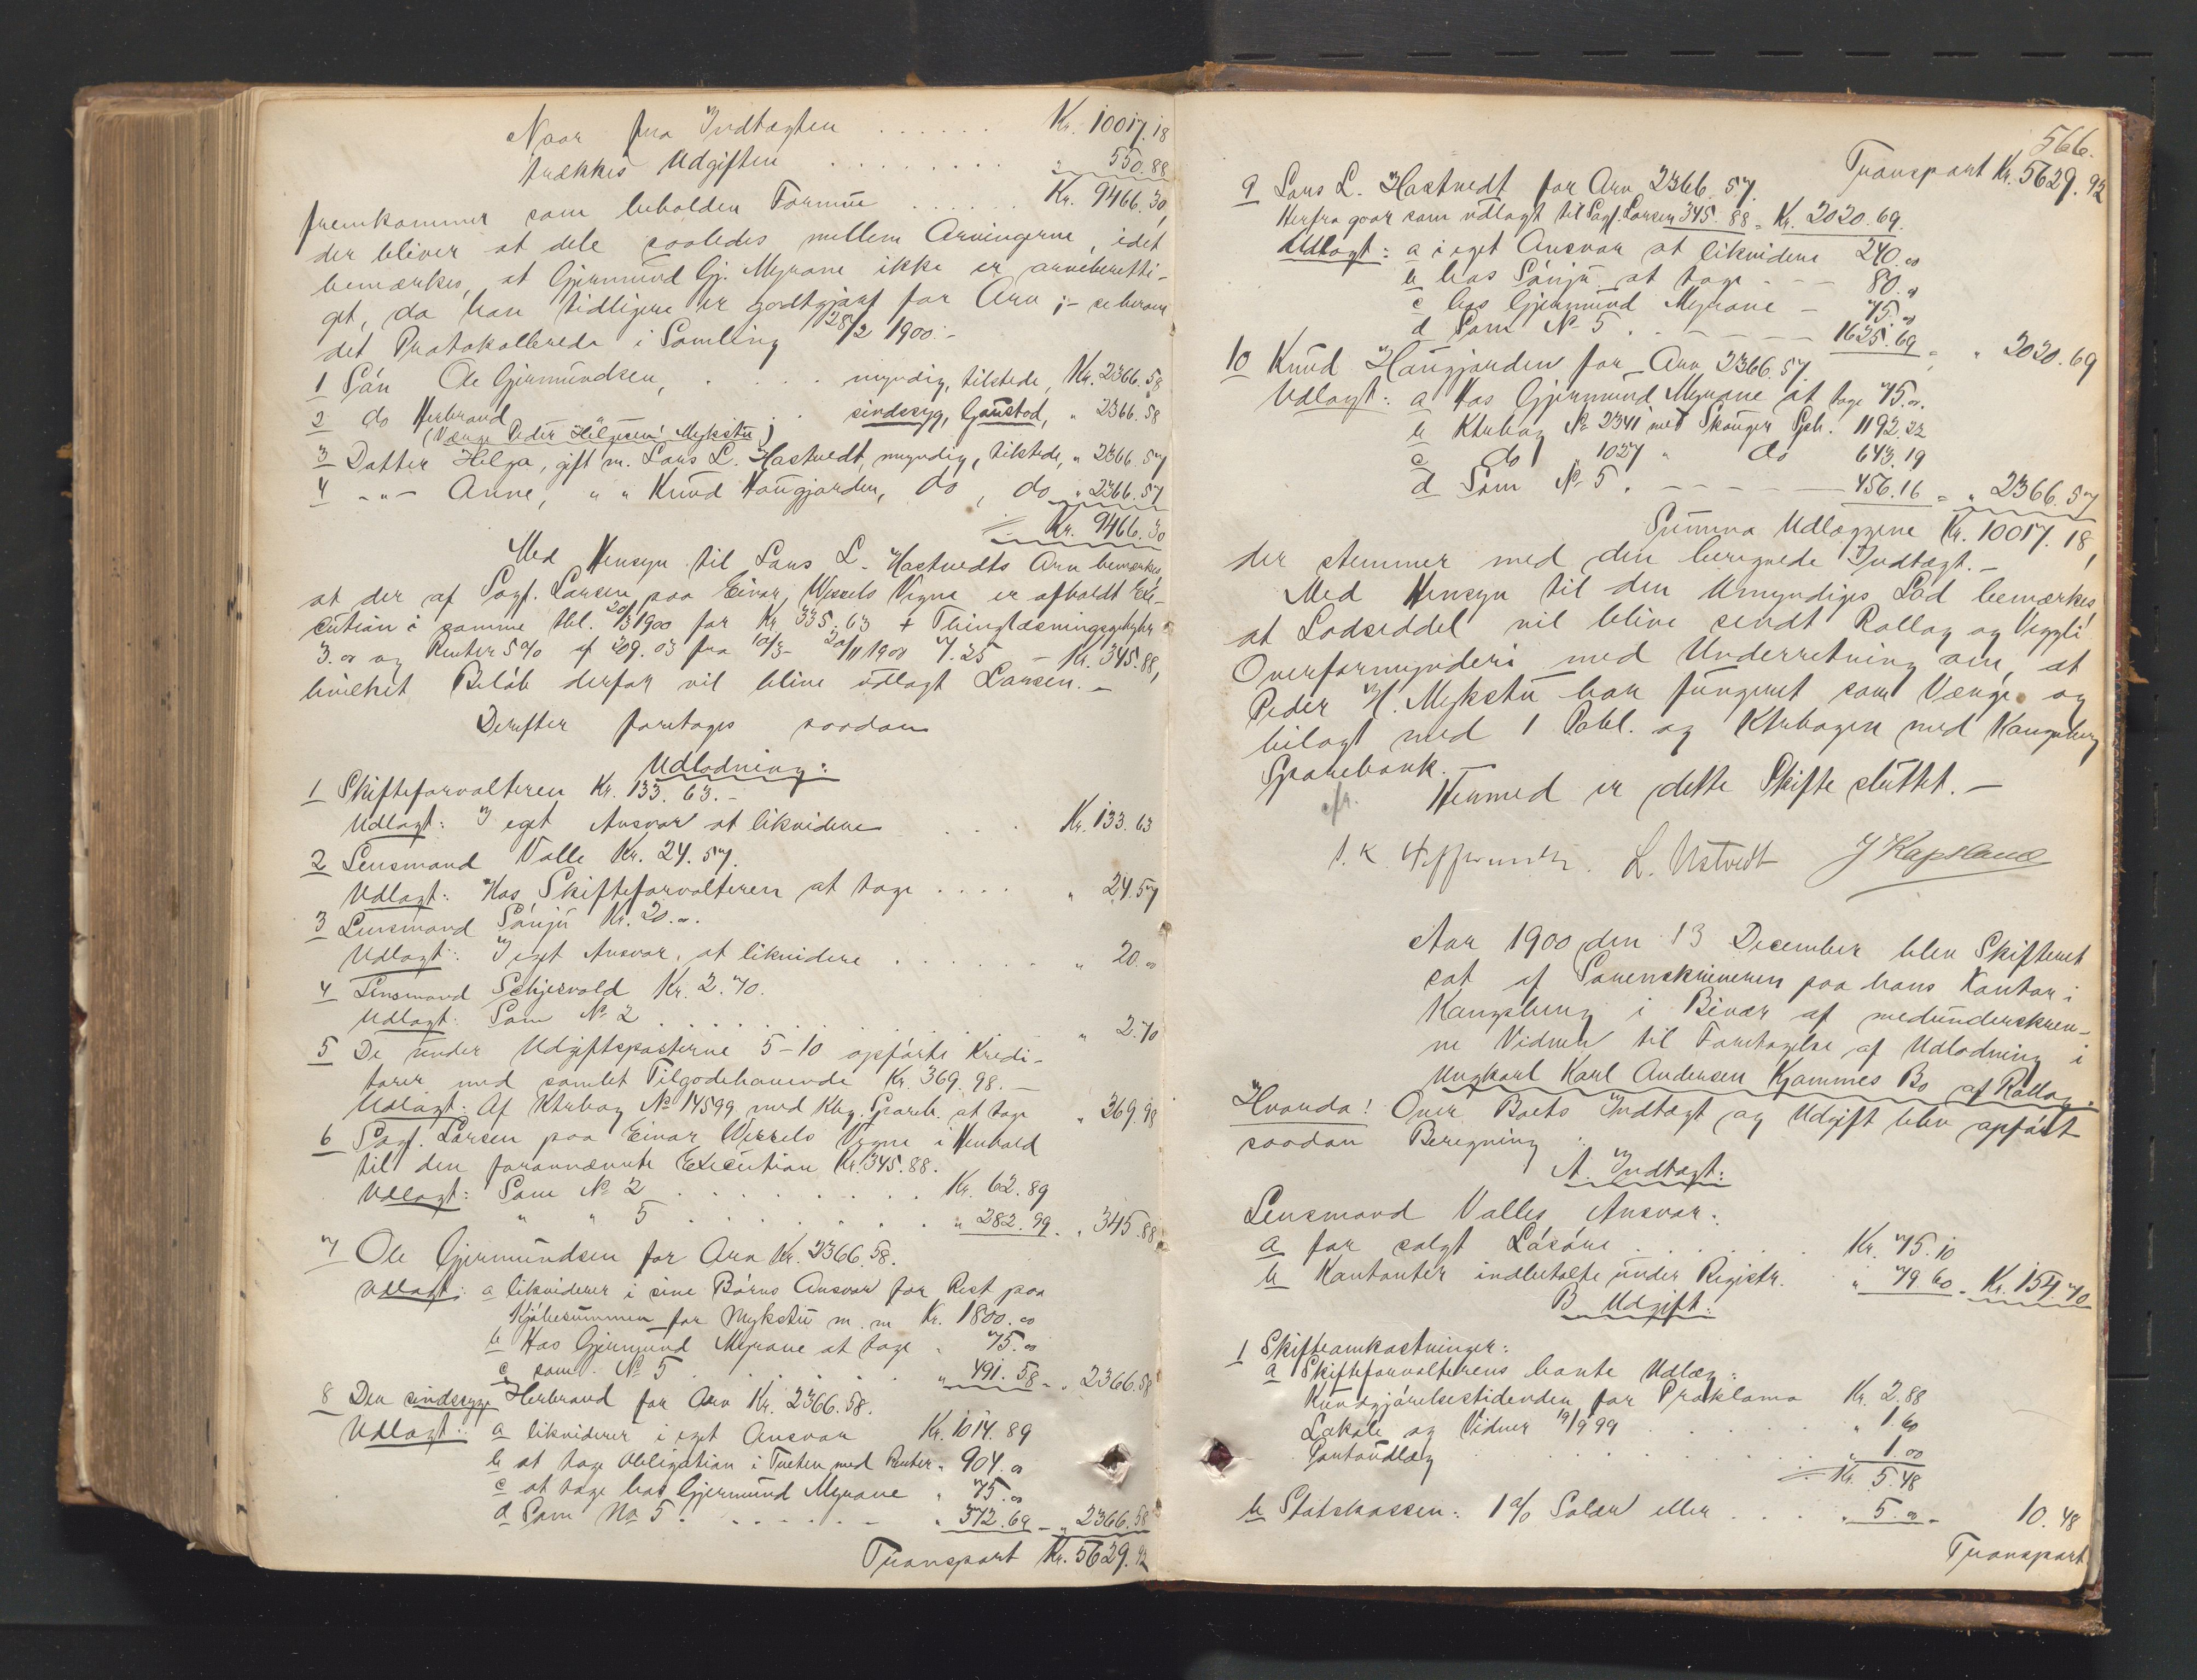 Naar fra Indtægten . . . . . . Kr. 10017.18
trækkes Udgiften . . . . . . . . . " 550.88
fremkommer som beholden Formue . . . . . . Kr. 9466.30,
der bliver at dele saaledes mellem Arvingerne, idet
bemærkes, at Gjermund Gj. Myrane ikke er arveberetti-
get, da han tidligere er godtgjort for Arv ;- se herom
det Protokollerede i Samling 28/2 1900.-
1 Søn Ole Gjermundsen, . . . . myndig, tilstede, Kr. 2366.58
2 do Herbrand . sindssyg, Gaustad, " 2366.58
(Værge Peder Helgesen Mykstu)
3 Datter Helga, gift m. Lars L. Hastvedt, myndig, tilstede, " 2366.57
4 -"- Anne, " " Knud Haugjorden, do, do " 2366.57
Kr. 9466.30
Med Hensyn til Lars L. Hastvedts Arv bemærkes,
at der af Sagf. Larsen paa Einar Wessels Vegne er afholdt Exe-
cution i samme tbl. 20/3 1900 for Kr. 335.63 + Thinglæsningsgebyhr
3.00 og Renter 5% af 209.03 fra 10/3 - 20/11 1900 7.25 - Kr. 345.88,
hvilket Beløb derfor vil blive udlagt Larsen. -
Derefter foretages saadan
Udlodning:
1 Skifteforvalteren Kr. 133.63.-
Udlagt: I eget Ansvar at likvidere . . . Kr. 133.63
2 Lensmand Valle Kr. 24.57.
Udlagt: Hos Skifteforvalteren at tage . . . . " 24.57
3 Lensmand Sønju Kr. 20.00.
Udlagt: I eget Ansvar, at likvidere . . . . . . . " 20.00
4 Lensmand Schjervold Kr. 2.70.
Udlagt: Som No 2 . . . . . . . . . " 2.70
5 De under Udgiftsposterne 5-10 opførte Kredi-
torer med samlet Tilgodehavende Kr. 369.98. -
Udlagt: Af Ktrabog No 14599 med Kbg. Spareb. at tage " 369.98
6 Sagf. Larsen paa Einar Wessels Vegne i Henhold
til den forannævnte Execution Kr. 345.88.
Udlagt: Som No 2 . . . . . . . . . Kr. 62.89
" " 5 . . . . . . . . . " 282.99 . " 345.88
7 Ole Gjermundsen for Arv Kr. 2366.58.
Udlagt: a likviderer i sine Børns Ansvar for Rest paa
Kjøbesummen for Mykstu m. m Kr. 1800.00
b Hos Gjermund Myrane at tage " 75.00
c som No 5 . . . . . . . " 491.58 - " 2366.58
8 Den sindssyge Herbrand for Arv Kr. 2366.58.
Udlagt: a likviderer i eget Ansvar Kr. 1014.89
b at tage Obligation i Tveten med Renter " 904.00
c at tage hos Gjermund Myrane " 75.00
d Som No 5 . . . . . . - " 372.69 - " 2366.58
Transport Kr. 5629.92
566.
Transport Kr. 5629.92
9 Lars L. Hastvedt for Arv 2366.57.
Herfra gaar som udlagt til Sagf. Larsen 345.88 = Kr. 2020.69.
Udlagt: a i eget Ansvar at likvidere 240.00
b hos Sønju at tage - - - 80.00
c hos Gjermund Myrane - 75.00
d Som No 5 . - - - - - 1625.69 = " 2020.69
10 Knud Haugjorden for Arv 2366.57
Udlagt: a Hos Gjermund Myrane at tage 75.00.
b Ktrabog No 2341 med Skauger Spb. 1192.22
c do " 1027 " do 643.19
d Som No 5 . - - - - 456.16 = " 2366.57
Summa Udlæggene Kr. 10017.18,
der stemmer med den beregnede Indtægt. -
Med Hensyn til den Umyndiges Lod bemærkes
at Lodseddel vil blive sendt Rollag og Veggli
Overformynderi med Underretning om, at
Peder H. Mykstu har fungeret som Værge og
bilagt med 1 Pobl. og Ktrabogen med Kongsberg
Sparebank. -
Hermed er dette Skifte sluttet. -
cfr.
L. Ustvedt J Kapsland
Aar 1900 den 13 December blev Skifteret
sat af Sorenskriveren paa hans Kontor i
Kongsberg i Bivær af medunderskrev-
ne Vidner til Foretagelse af Udlodning i
Ungkarl Karl Andersen Kjømmes Bo af Rollag.
Hvorda! Over Boets Indtægt og Udgift blev opført
saadan Beregning:
A. Indtægt:
Lensmand Valles Ansvar:
a for solgt Løsøre . . . . . . Kr. 75.10
b Kontanter indbetalte under Registr. " 79.60 = Kr. 154.70
B Udgift:
1 Skifteomkostninger:
a Skifteforvalterens havte Udlæg:
Kundgjørelsestidenden for Proklama Kr. 2.88
Lokale og Vidner 19/9 99 . . . . . " 1.60
Portoudlæg . . . . . . . " 1.00
Kr. 5.48
b Statskassen: 1% Salær eller . . . " 5.00 - 10.48
Transport